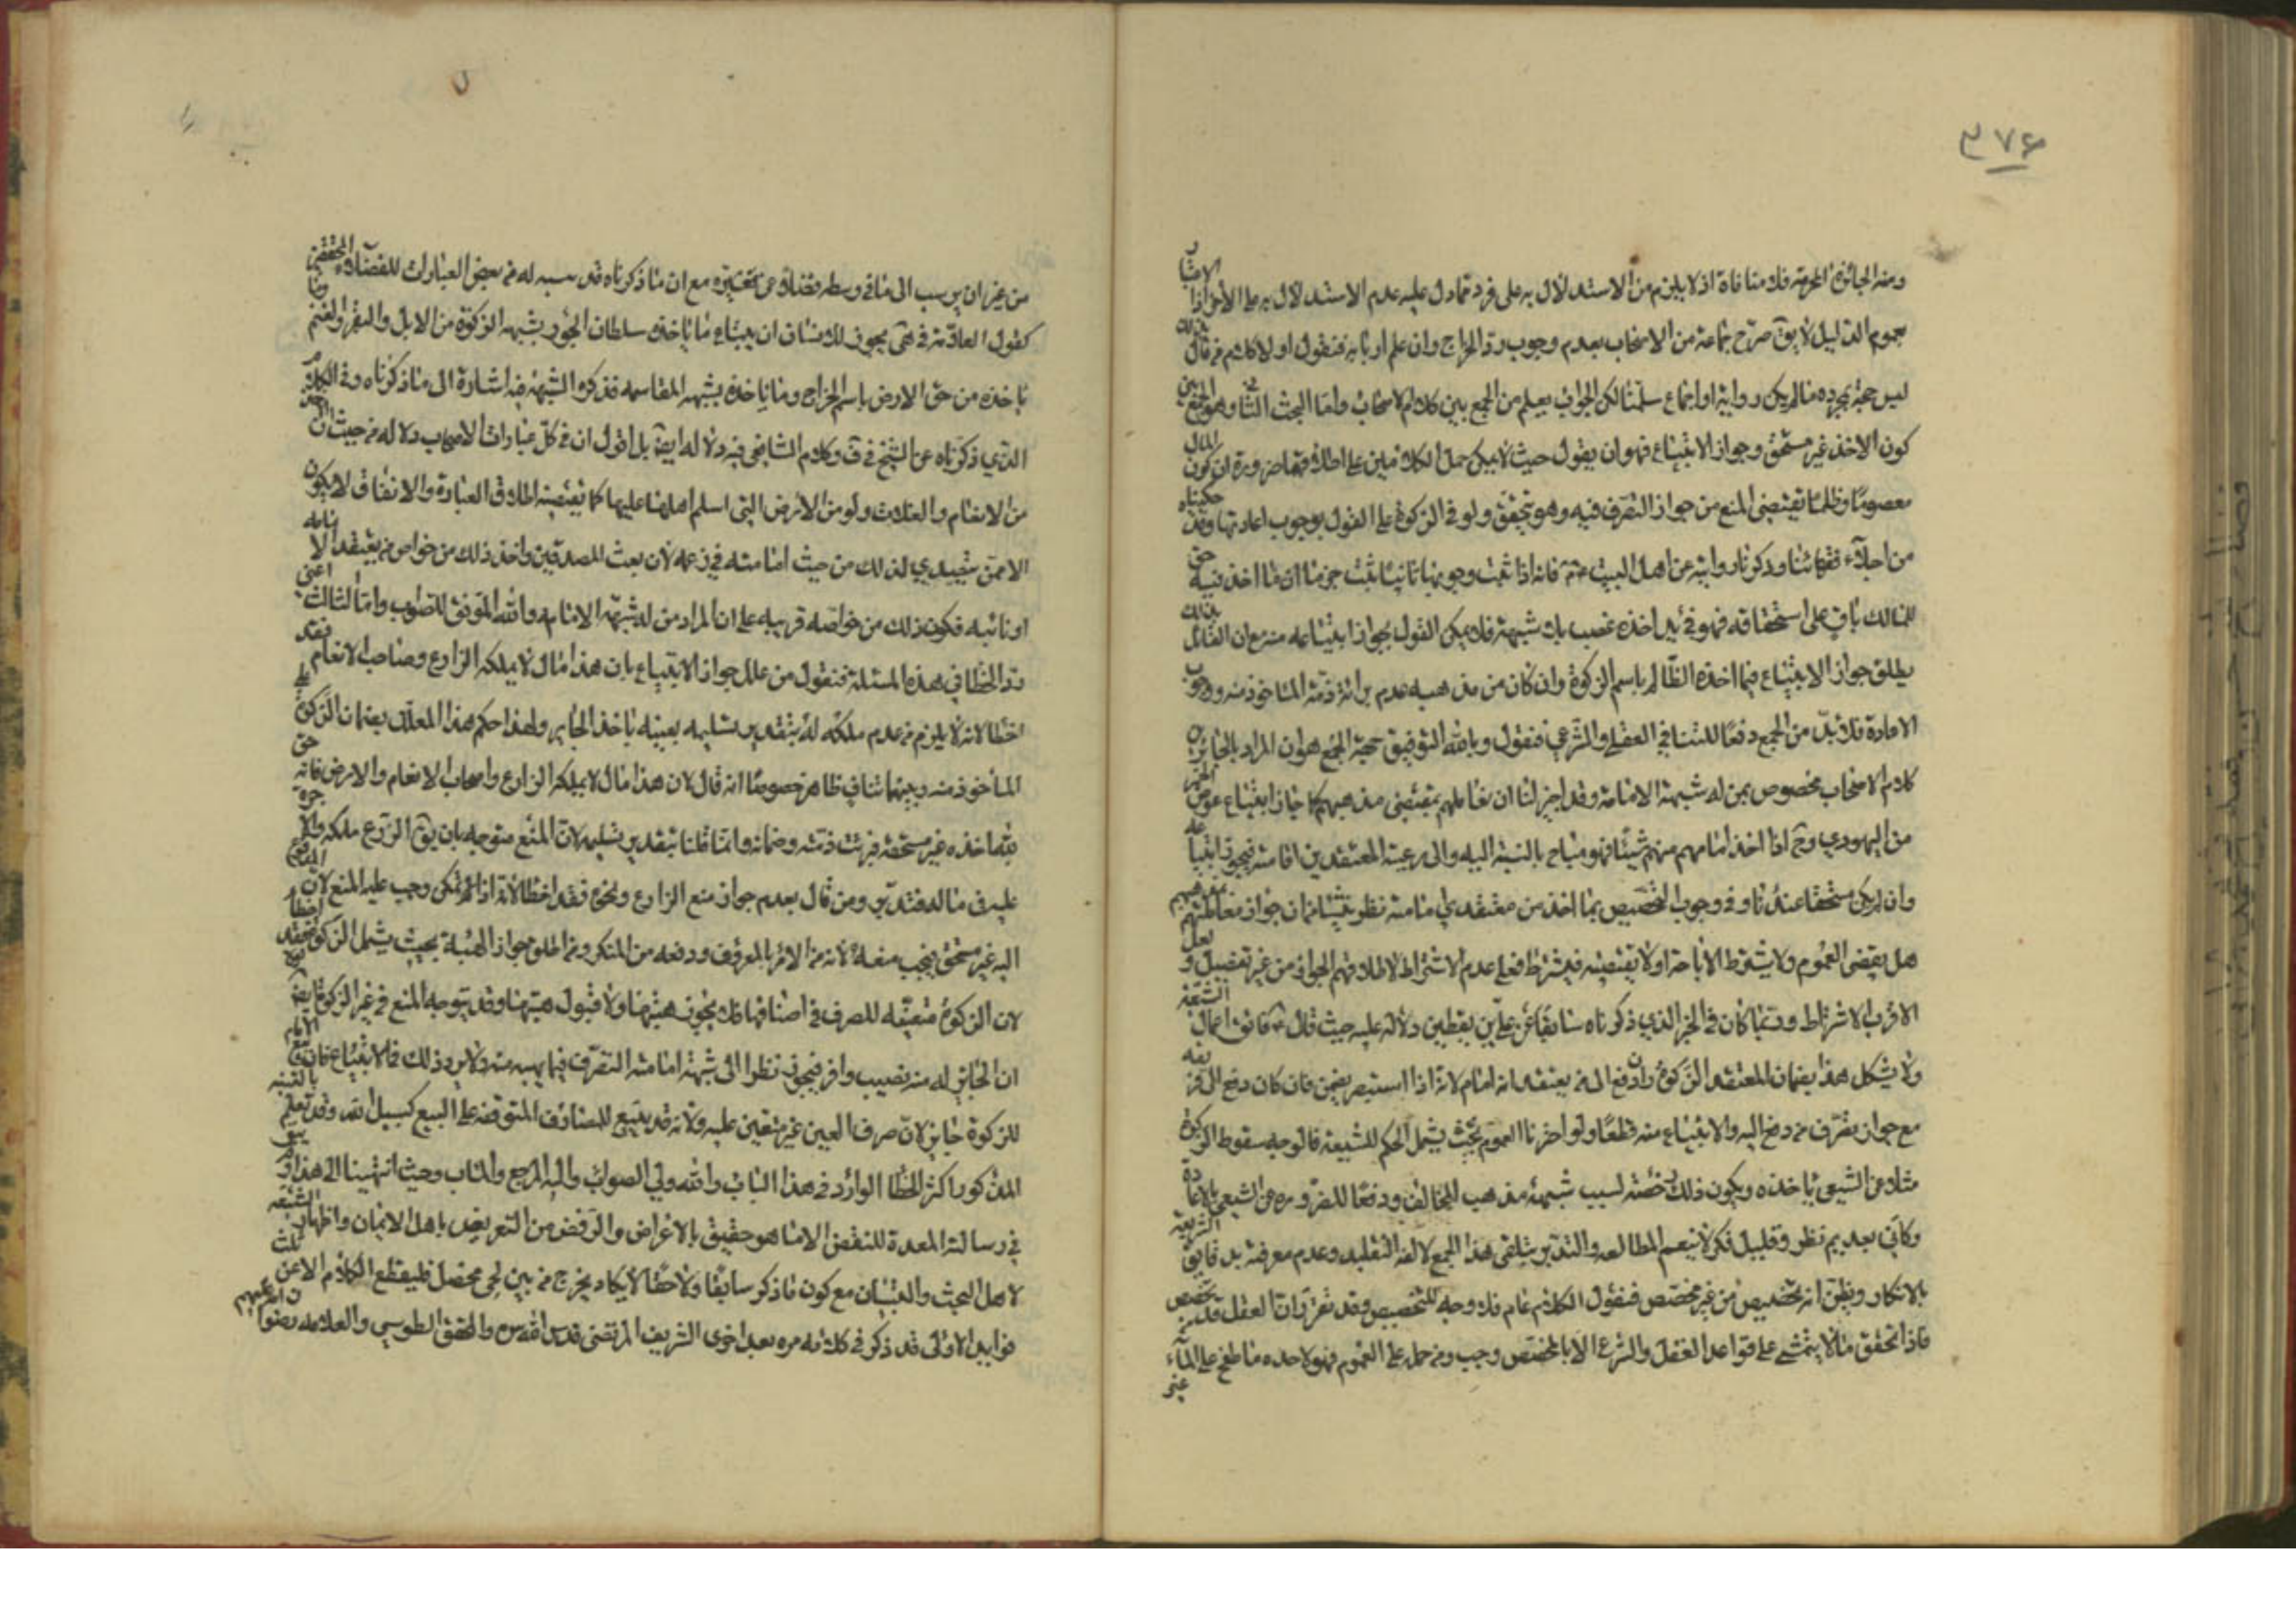 ٣٧٤
ومنه الجائزة المحرمة فلا منافاة اذ لا يلزم من الاستدلال به على فرد تمادل عليه عدم الاستدلال به على الاخر اذا الاعتبار
بعموم الدليل لا يق صرح جماعة من الاصحاب بعدم وجوب رد الخراج وان علم اربابه فنقول اولا كلام من قال بذلك
ليس حجة بمجرده ما لم يكن رواية او اجماع سلمنا لكن الجواب يعلم من الجمع بين كلام الاصحاب واما البحث الثاني وهو الجمع بين
كون الاخذ غير مستحق وجواز الابتياع فهو ان يقول حيث لا يمكن حمل الكلامين على اطلاقهما ضرورة ان كون المال
معصوما وظلما يقتضي المنع من جواز التصرف فيه وهو يتحقق ولو في الزكوة على القول بوجوب اعادتها وقد حكيناه
من اجلاء فقهائنا وذكرنا رواية عن اهل البيت فانه اذا ثبت وجوبها ثانيا ثبت جزما ان ما اخذ فيه حق
للمالك باق على استحقاقه فهو في يد اخذه غصب بلا شبهة فلا يمكن القول بجواز ابتياعه منه مع ان القائل بذلك
يطلق جواز الابتياع فيما اخذه الظالم باسم الزكوة وان كان من مذهبه عدم برائة ذمة الماخوذ منه ووجوب
الاعادة فلا بد من الجمع دفعا للتنافي العقلي والشرعي فنقول وبالله التوفيق جهة الجمع هو ان المراد بالجائر في
كلام الاصحاب مخصوص بمن له شبهة الامامة وقد اجيز لنا ان نعاملهم بمقتضى مذهبهم كما جاز ابتياع عوض الخمر
من اليهودي وح اذا اخذ امامهم منهم شيئا فهو مباح بالنسبة اليه والى رعيته المعتقدين امامته فيجوز ابتياعه
وان لم يكن مستحقا عندنا وفي وجوب التخصيص بما اخذ من معتقدي امامته نظر ينشا من ان جواز معاملتهم بمذهبهم
هل يقتضي العموم ولا يشترط الاباحة اولا يقتضيه فيشترط فعلى عدم الاشتراط الاطلاق الجواز من غير تفصيل ولعل
الاقرب الاشتراط وربما كان في الخبر الذي ذكرناه سابقا عن علي بن يقطين دلالة عليه حيث قال فاتق اموال الشيعة
ولا يشكل هذا بضمان المعتقد الزكوة وان دفع الى من يعتقد انه امام لانه اذا استبصر يضمن فان كان دفع
مع جواز تصرف من دفع اليه والابتياع منه قطعا ولو اخترنا العموم بحيث يشمل الحكم للشيعة فالوجه سقوط الزكوة
مثلا عن الشيعي باخذه ويكون ذلك رخصة لسبب شبهة مذهب المخالف ودفعا للضرر عن الشيعي بالاعادة
وكاني بعديم نظر وقليل فكر لا ينعم المطالعة والتدبر يتلقى هذا الجمع لالفه التقليد وعدم معرفته بدقايق الشريعة
بالانكار ويظن انه تخصيص من غير مخصص فنقول الكلام عام فلا وجه للتخصيص وقد تقرر ان العقل قد يخصص
فاذا تحقق ما لا يتمشى على قواعد العقل والشرع الا بالمخصص وجب ومن حمل على العموم فهو لاحده ما طغى على الماء
من غير ان يرسب الى ما في وسطه مع ان ما ذكرناه قد من بعض العبارات للفضلاء المحققين
كقول العلامة في هى يجوز للانسان ان يبتاع ما ياخذه سلطان الجور بشبهة الزكوة من الابل والبقر والغنم وما
ياخذه من حق الارض باسم الخراج وما ياخذه بشبهة المقاسمة فذكره الشبهة فيه اشارة الى ما ذكرناه وفي الكلام
الذي ذكرناه عن الشيخ في ف وكلام الشافعي فيه دلالة ايضا بل اقول ان في كل عبارات الاصحاب دلالة من حيث ان
من الانعام والغلات ولو من الارض التي اسلم اهلها عليها كما يقتضيه اطلاق العبارة والاتفاق لا يكون
الا ممن يتصدى لذلك من حيث امامته في زعمه لان بعث المصدقين واخذ ذلك من خواص من يعتقد الامامة
او نائبه فكون ذلك من خواصه قرينة على ان المراد من له شبهة الامامة والله الموفق للصواب واما الثالث اعني
رد الخطا في هذه المسئلة فنقول من علل جواز الابتياع بان هذا مال لا يملكه الزارع وصاحب الانعام فقد
اخطا لانه لا يلزم من عدم ملكه له بتقدير تسليمه بعينه ياخذ الجاير ولهذا حكم هذا المعلل بضمان الزكوة على
الماخوذ منه وبينهما تناف ظاهر خصوصا انه قال لان هذا مال لا يملكه الزارع واصحاب الانعام والارض فانه حق
اخذه غير مستحقه فبرئت ذمته وضمانه وانما قلنا بتقدير تسليمه لان المنع متوجه بان يق الزرع ملكه والا
عليه في ماله ومن قال بعدم جواز منع الزارع ونحوه فقد اخطا لانه اذا تمكن وجب عليه المنع لان المدفوع
اليه غير مستحق فيجب منعه لانه من الامر بالمعروف ودفعه من المنكر ومن اطلق جواز الهبة بحيث يشمل الزكوة فقد اخطأ
لان الزكوة متعينة للصرف في اصنافها فلا يجوز هبتها ولا قبول هبتها وقد يتوجه المنع في غير الزكوة ايضا
ان الجائر له منه نصيب وافر فيجوز نظرا الى شبهة امامته التصرف فيما يهبه منه ولا يرد ذلك فالابتياع فان
للزكوة جايز لان صرف العين غير متعين عليه ولانه قد يبتيع للمصارف المتوقفة على البيع كسبيل الله وقد تعلم
المذكور اكثر الخطا الوارد في هذا الباب والله ولي الصواب واليه المرجع والماب وحيث انتهينا الى هذا
في رسالته المعدة للنقض الا ما هو حقيق بالاعراض والرفض من التعريض باهل الايمان واظهار
لاهل البحث والتبيان مع كون ما ذكر سابقا ولاحقا لا يكاد يخرج من بين لحى محصل فليقطع الكلام الا عن ثلث
فوايد الاولى قد ذكر في كلامه مره بعد اخرى الشريف المرتضى قدس الله سره والمحقق الطوسي والعلامة رضوان الله عليهم